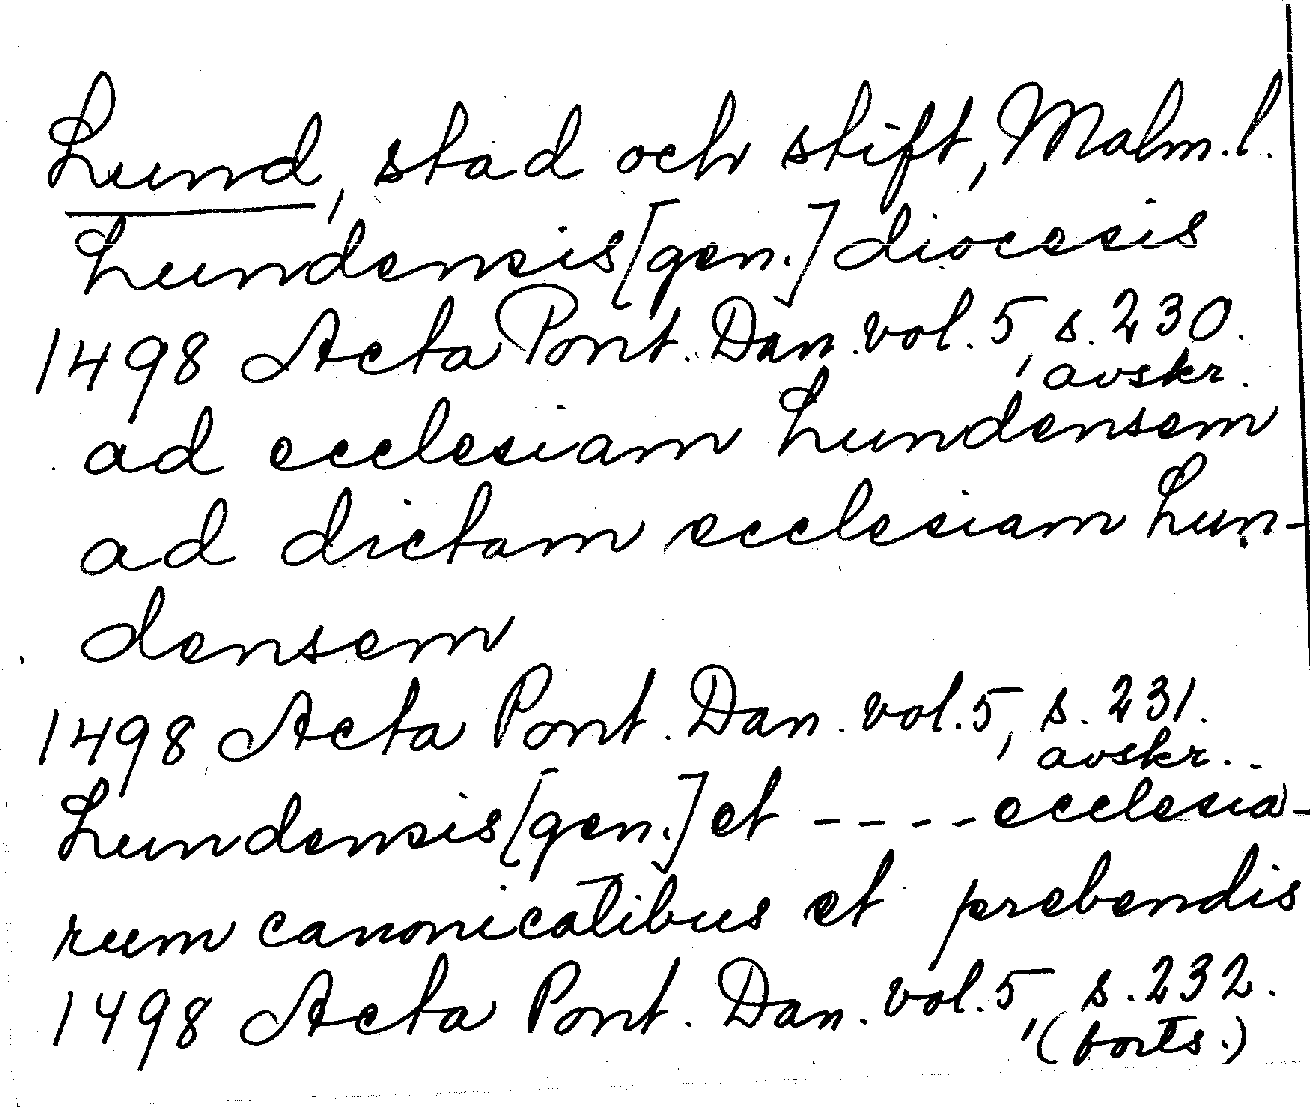 Lund, stad och stift, Malm.l.
Lundensis [gen.] diocesis
1498 Acta Pont. Dan. vol. 5, s. 230.
avskr.
ad ecclesiam Lundensem
ad dictam ecclesiam Lun-
densem
1498 Acta Pont. Dan. vol. 5, s. 231.
avskr..
Lundensis [gen.] et ---- ecclesia-
rum canonicatibus et prebendis
1498 Acta Pont. Dan. vol. 5, s. 232.
(forts.)